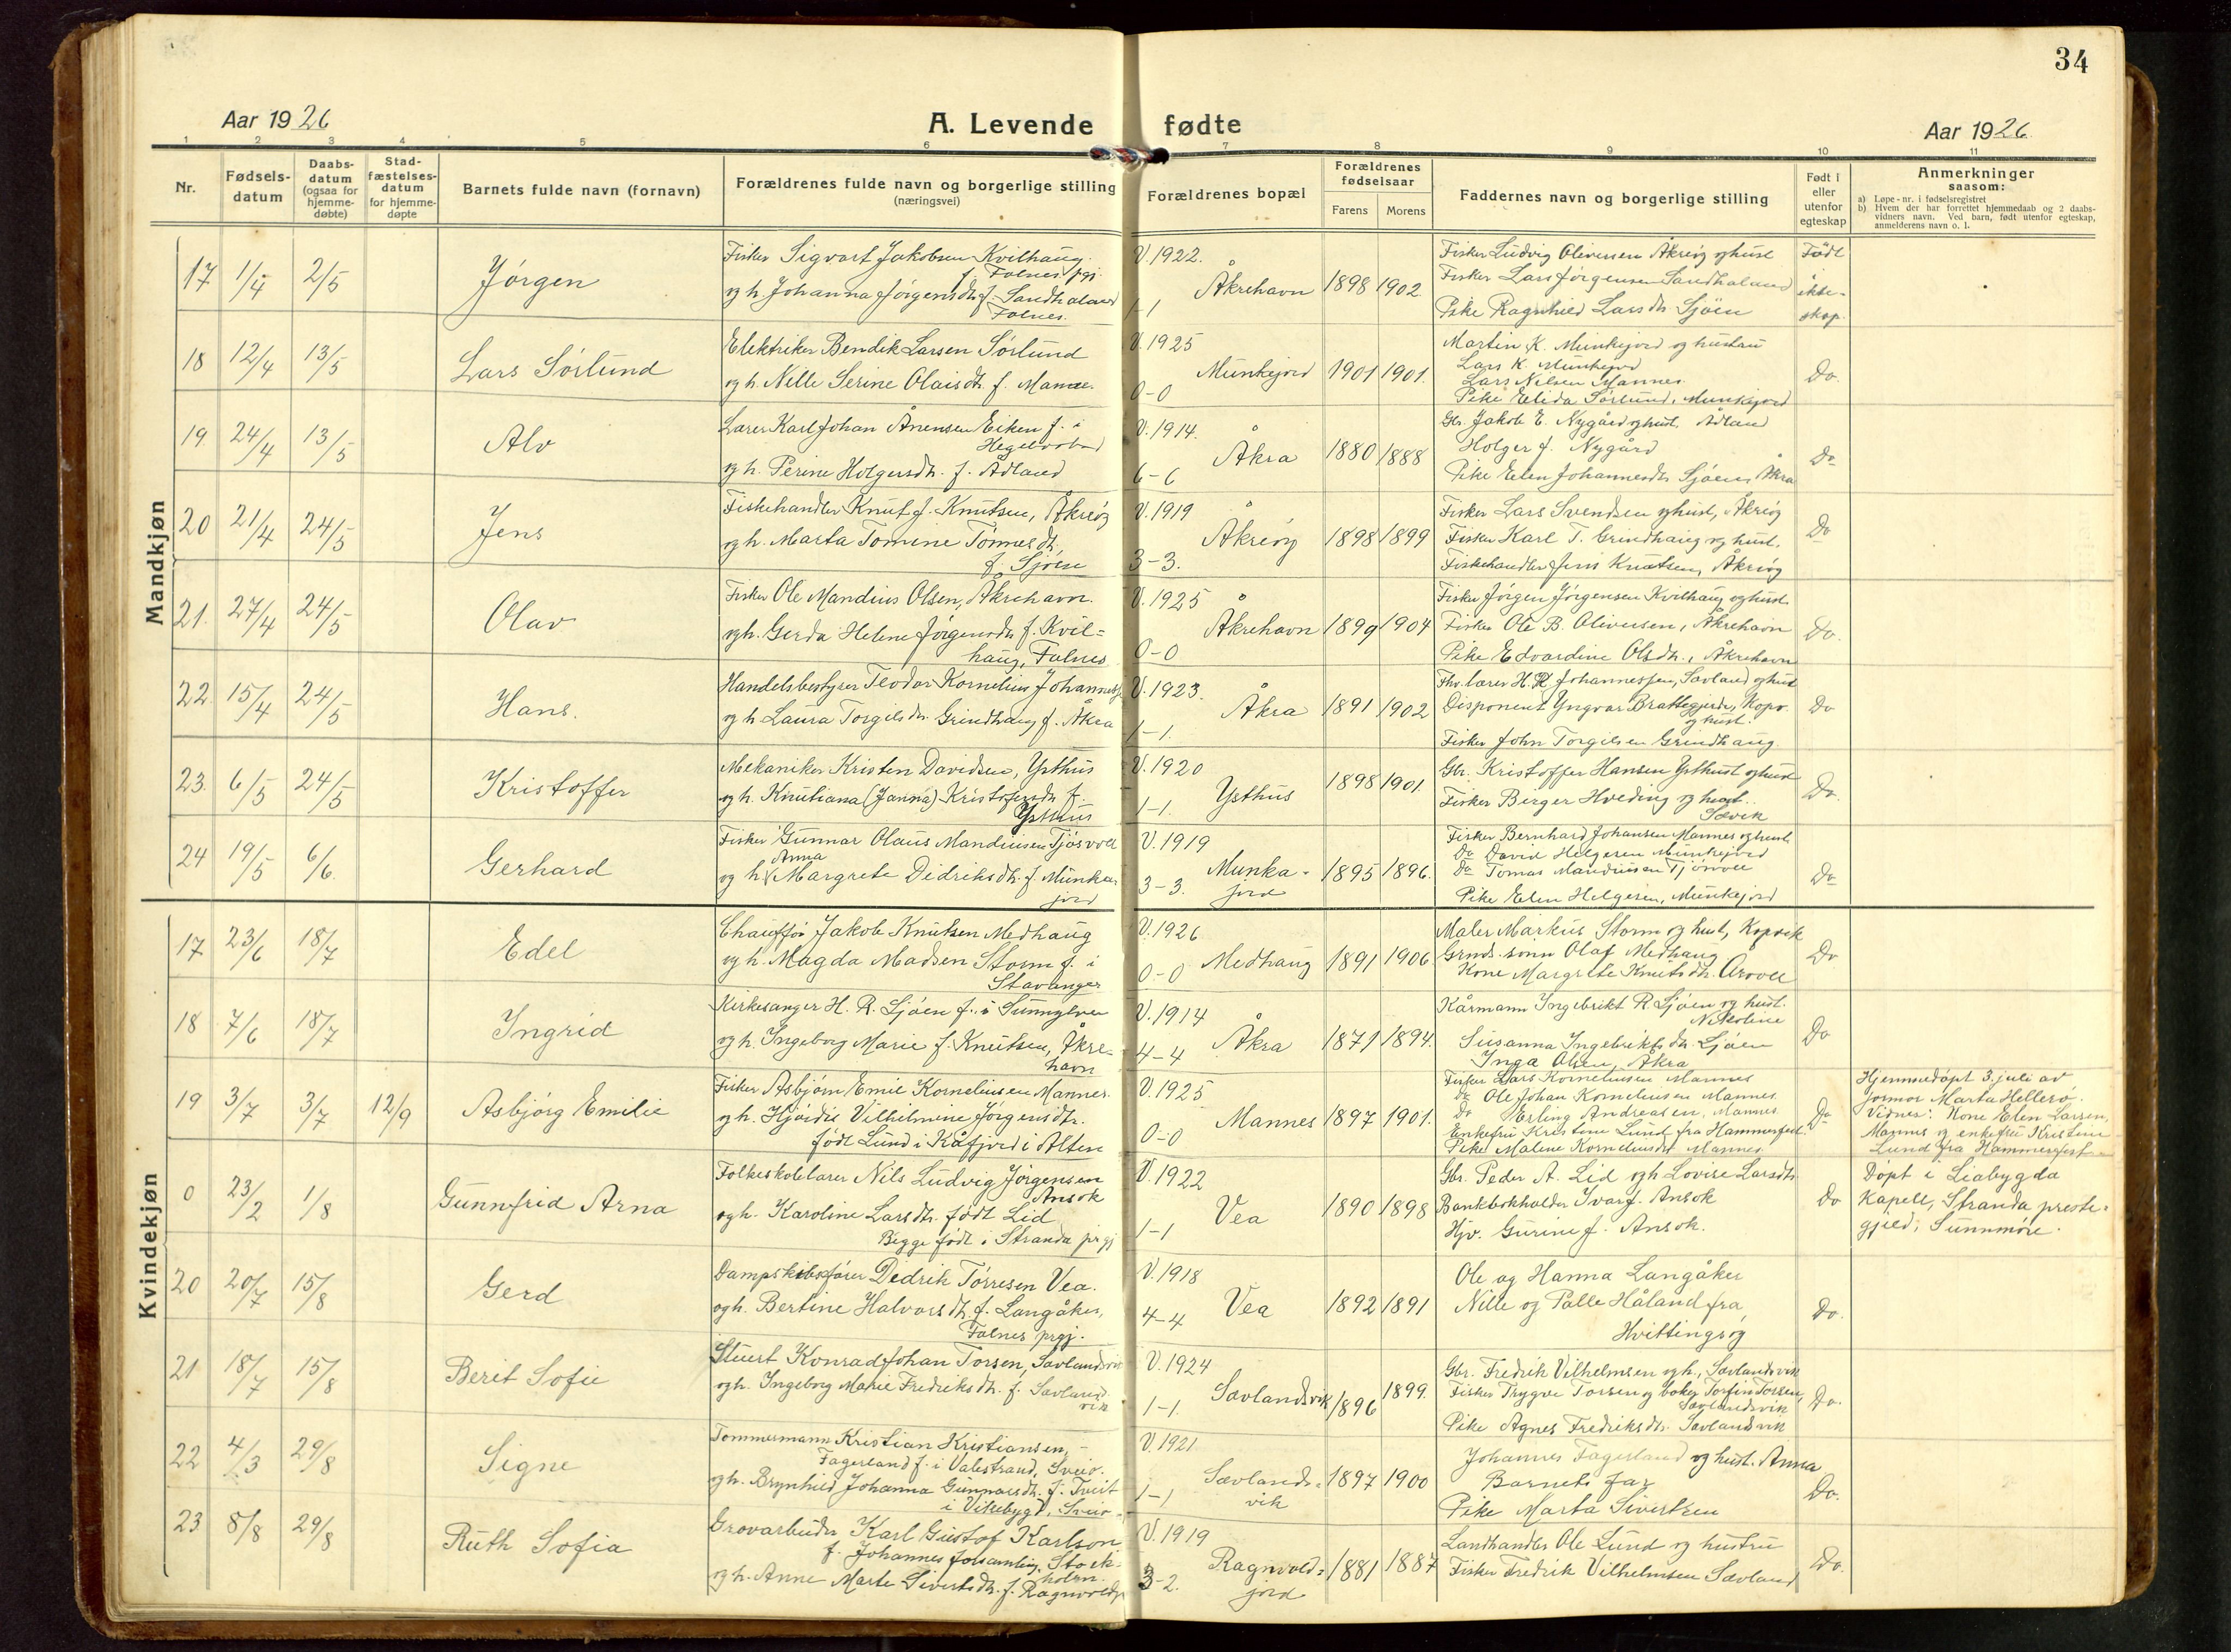 34
Aar 1926
A. Levende fødte
Aar 1926.
1 2 3 4 5 6 7 8 9 10 11
Nr.
Fødsels-
datum
Daabs-
datum
(ogsaa for
hjemme-
døbte)
Stad-
fæstelses-
datum
for hjemme-
døpte
Barnets fulde navn (fornavn)
Forældrenes fulde navn og borgerlige stilling
(næringsvei)
Forældrenes bopæl
Forældrenes
fødselsaar
Farens Morens
Faddernes navn og borgerlige stilling
Født i
eller
utenfor
egteskap
Anmerkninger
saasom:
a) Løpe-nr. i fødselsregistret
b) Hvem der har forrettet hjemmedaab og 2 daabs-
vidners navn. Ved barn, født utenfor egteskap,
anmelderens navn o. l.
Mandkjøn
17 1/4 2/5 Jørgen
Fisker Sigvart Jakobsen Kvilhaug
f. Falnes pgj.
og h. Johanna Jørgensdtr f. Sandhaland
Falnes.
V. 1922.
1-1 Åkrehavn 1898 1902
Fisker Ludvig Oliversen Åkreøy og hust
Fisker Lars Jørgensen Sandhaland
Pike Ragnhild Larsdtr Sjøen
Født
i ekte-
skap.
18 12/4 13/5 Lars Sørlund
Elektriker Bendik Larsen Sørlund
og h. Nille Serine Olaisdtr. f. Mannes.
V. 1925
0-0 Munkejord 1901 1901.
Martin K. Munkejord og hustru
Lars K. Munkejord
Lars Nilsen Mannes.
Pike Elida Sørlund, Munkejord
Do.
19 24/4 13/5 Alv
Lærer Karl Johan Ånensen Eiken f. i
Hegebostad
og h. Perine Holgersdtr. f. Ådland
V. 1914.
6-6 Åkra 1880 1888
Gbr. Jakob E. Nygård og hust. Ådland
Holger f. Nygård
Pike Elen Johannesdtr Sjøen, Åkra
Do
20 21/4 24/5 Jens
Fiskehandler Knut J. Knutsen, Åkreøy
og h. Marta Tomine Tønnesdtr.
f. Sjøen
V. 1919
3-3. Åkreøy 1898 1899
Fisker Lars Svendsen og hust, Åkreøy
Fisker Karl T. Grindhaug og hust.
Fiskehandler Jens Knutsen, Åkreøy
Do
21. 27/4 24/5 Olav
Fisker Ole Mandius Olsen, Åkrehavn.
og h. Gerda Helene Jørgensdtr f. Kvil=
haug, Falnes
V. 1925
0-0 Åkrehavn 1899 1904
Fisker Jørgen Jørgensen Kvilhaug og hust.
Fisker Ole B. Oliversen, Åkrehavn
Pike Edvardine Olsdtr., Åkrehavn
Do.
22. 15/4 24/5 Hans.
Handelsbestyrer Teodor Kornelius Johannesen
og h. Laura Torgilsdtr. Grindhaug f. Åkra
V. 1923.
1-1. Åkra 1891 1902
Fhv. lærer H. H. Johannessen, Sævland og hust
Disponent Yngvar Brattegjerde, Kopv.
og hust.
Fisker John Torgilsen Grindhaug.
Do
23. 6/5 24/5 Kristoffer
Mekaniker Kristen Davidsen, Ysthus
og h. Knutiana (Janna) Kristofersdtr f.
Ysthus
V. 1920
1-1. Ysthus 1898 1901
Gbr. Kristoffer Hansen Ysthust og hust
Fisker Birger Hveding og hust..
Sævik
Do.
24 19/5 6/6. Gerhard
Fisker Gunnar Olaus Mandiusen Tjøsvoll
Anna
og h. Margrete Didriksdtr. f. Munka-
jord
V. 1919
3-3. Munka-
jord 1895 1896.
Fisker Bernhard Johansen Mannes og hust.
Do David Helgesen Munkejord
Do Tomas Mandiusen Tjøsvoll
Pike Elen Helgesen, Munkejord
Do
Kvindekjøn
17 23/6 18/7 Edel
Chauffør Jakob Knutsen Medhaug
og h. Magda Madsen Storm f. i
Stavanger
V. 1926
0-0 Medhaug 1891 1906
Maler Markus Storm og hust, Kopvik
Grunds.sønn Olaf Medhaug
Kone Margrete Knutsdtr. Årvoll
Do
18 7/6 18/7 Ingrid
Kirkesanger H. R. Sjøen f. i Sunnylven
og h. Ingeborg Marie f. Knutsen, Åkre-
havn
V. 1914
4-4 Åkra 1871 1894.
Kårmann Ingebrikt R. Sjøen og hust.
Nikoline
Susanna Ingebriktsdtr. Sjøen
Inga Olsen, Åkra
Do
19 3/7 3/7 12/9 Asbjørg Emilie
Fisker Asbjørn Emil Korneliussen Mannes.
og h. Hjørdis Vilhelmine Jørgensdtr.
født Lund i Kåfjord i Alten
V. 1925
0-0 Mannes 1897 1901.
Fisker Lars Korneliussen Mannes
Do Ole Johan Korneliussen Mannes.
Do Erling Andreasen, Mannes
Enkefru Kristine Lund fra Hammerfest.
Pike Malene Korneliusdtr Mannes
Do
Hjemmedøpt 3. juli av
jormor Marta Hellerø.
Vidner: Kone Elen Larsen,
Mannes og enkefru Kristine
Lund fra Hammerfest
0 23/2 1/8 Gunnfrid Arna
Folkeskolelærer Nils Ludvig Jørgensen
Ansok
og h. Karoline Larsdtr. født Lid
Begge født i Stranda prgj
V. 1922
1-1 Vea 1890 1898
Gbr. Peder A. Lid og h. Lovise Larsdtr
Bankbokholder Ivar J. Ansok
Hjv. Gurine J. Ansok.
Do
Døpt i Liabygda
Kapell, Stranda preste=
gjeld, Sunnmøre.
20 20/7 15/8 Gerd
Dampskibsfører Dedrik Tørresen Vea.
og h. Bertine Halvorsdtr. f. Langåker,
Falnes prgj.
V. 1918
4-4 Vea 1892 1891
Ole og Hanna Langåker
Nille og Palle Håland fra
Hvittingsøy
Do.
21 18/7 15/8 Berit Sofie
Stuert Konrad Johan Torsen, Sævlandsvik
og h. Ingeborg Marie Fredriksdtr. f. Sævlands
vik
V. 1924
1-1. Sævlandsvik 1896 1899.
Gbr. Fredrik Vilhelmsen og h., Sævlandsvik
Fisker Trygve Torsen og baker Torfin Torsen,
Sævlandsvik
Pike Agnes Fredriksdtr. Sævlandsvik
Do.
22 4/3 29/8 Signe
Tømmermann Kristian Kristiansen,
Fagerland f. i Valestrand, Sveio.
og h. Brynhild Johanna Gunnarsdtr. f. Tveit
i Vikebygd, Sveio
V. 1921
1-1 Sævlands=
vik 1897 1900
Johannes Fagerland og hust. Anna
Barnets far
Pike Marta Sivertsen
Do.
23 8/8 29/8 Ruth Sofia
Grovarbeider Karl Gustof Karlson
f. Johannes forsamling, Stock-
holm.
og h. Anne Marte Sivertsdtr. f. Ragnvoldsj
V. 1919
3-2. Ragnvold=
jord 1881 1887
Landhandler Ole Lund og hustru
Fisker Fredrik Vilhelmsen Sævland
Do.